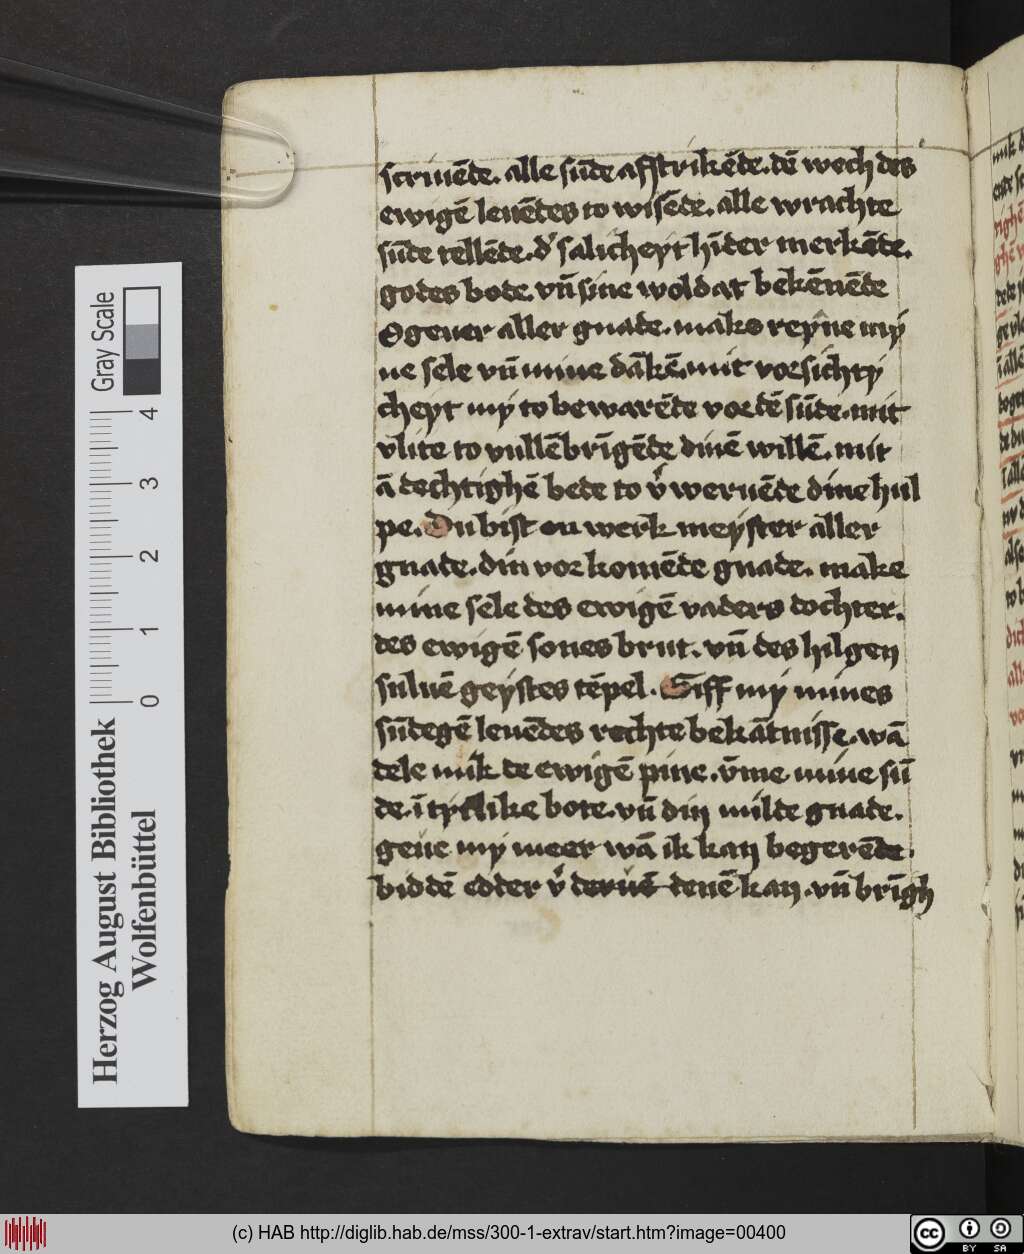 scriuēde. alle sūde afstrikēde. dē wech des
ewigē leuēdes to wisēde. alle wrachte
sūde tellēde. d' salicheyt hīder merkēde.
godes bode. vn̄ sine woldat bekēnēde
O geuer aller gnade. make reyne my
ne sele vn̄ mine dākē. mit vorsichty
cheyt my to bewarēde vor dē sūde. mit
vlite to vullēbrīgēde dinē willē. mit
ādechtighē bede to v'weruēde dine hul
pe. Du bist eu werk meyster aller
gnade. din vorkomēde gnade. make
mine sele des ewigē vaders dochter.
des ewigē sones brut. vn̄ des hilgen
suluē geystes tēpel. Giff my mines
sūdegē leuēdes rechte bekātnisse. wā
dele mik de ewigē pine. v̄me mine sū
de. ī tytlike bote. vn̄ din milde gnade.
geue my meer wā ik kan begerēde.
biddē edder v' deruē denē kan. vn̄ brīgh
Herzog August Bibliothek
Wolfenbüttel
0 1 2 3 4
Gray Scale
(c) HAB http://diglib.hab.de/mss/300-1-extrav/start.htm?image=00400
cc BY SA